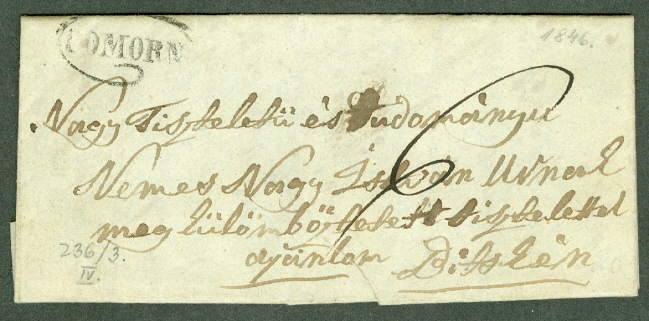 COMORN
1846.
6
Nagy Tiszteletű és tudományu
Nemes Nagy István Urnak
megkülömböztetett tisztelettel
ajánlom Disskén
236/3.
IV.